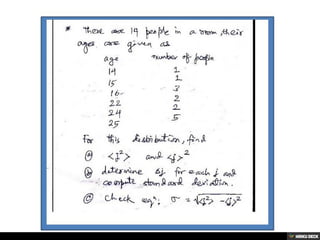 * There are 14 people in a room, their
ages are given as
age number of people
14 1
15 1
16 3
22 2
24 2
25 5
For this distribution, find
(a) <j²> and <j>²
(b) determine Δj for each j and
compute standard deviation.
(c) check eqⁿ: σ = √<j²> - <j>²